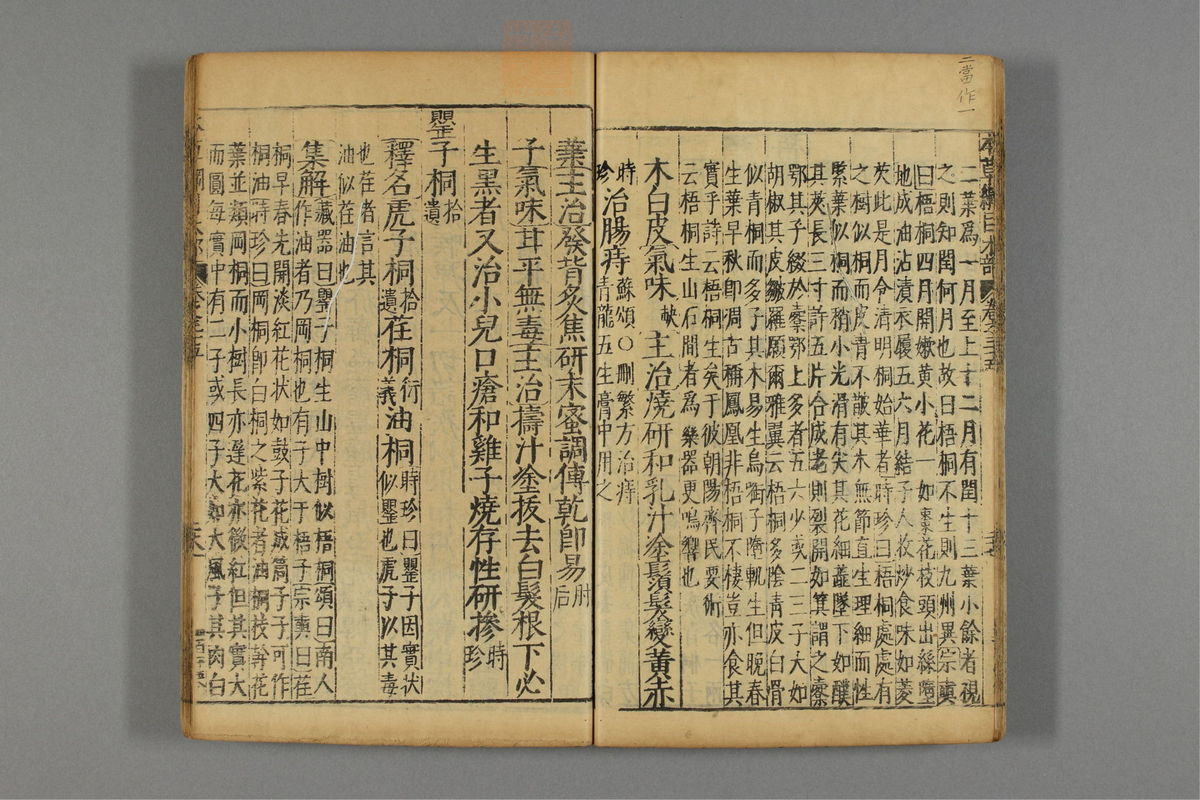 二當作一
本草綱目木部 卷之三十五
二葉為一月至上十二月有閏十三葉小餘者視
之則知閏何月也故曰梧桐不生則九州異宗奭
曰梧桐四月開嫩黃小花一如棗花枝頭出絲墮
地成油沾漬衣履五六月結子人收炒食味如菱
芡此是月令清明桐始華者時珍曰梧桐處處有
之樹似桐而皮青不皵其木無節直生理細而性
緊葉似桐而稍小光滑有尖其花細蕋墜下如醭
其莢長三寸許五片合成老則裂開如箕謂之橐
鄂其子綴於橐鄂上多者五六少或二三子大如
胡椒其皮皺羅願爾雅翼云梧桐多陰青皮白骨
似青桐而多子其木易生鳥銜子墮輒生但晚春
生葉早秋即凋古稱鳳凰非梧桐不棲豈亦食其
實乎詩云梧桐生矣于彼朝陽齊民要術
云梧桐生山石間者為樂器更鳴響也
木白皮氣味缺主治燒研和乳汁塗鬚髮變黃赤
時珍治腸痔蘇頌○刪繁方治痔青龍五生膏中用之
葉主治發背炙焦研末蜜調傅乾即易肘后
子氣味甘平無毒主治擣汁塗拔去白髮根下必
生黑者又治小兒口瘡和雞子燒存性研摻時珍
罌子桐拾遺
釋名虎子桐拾遺荏桐衍義油桐時珍曰罌子因實狀似罌也虎子以其毒
也荏者言其
油似荏油也
集解藏器曰罌子桐生山中樹似梧桐頌曰南人
作油者乃岡桐也有子大于梧子宗奭曰荏
桐早春先開淡紅花狀如鼓子花成筒子子可作
桐油時珍曰岡桐即白桐之紫花者油桐枝幹花
葉並類岡桐而小樹長亦遲花亦微紅但其實大
而圓每實中有二子或四子大如大風子其肉白